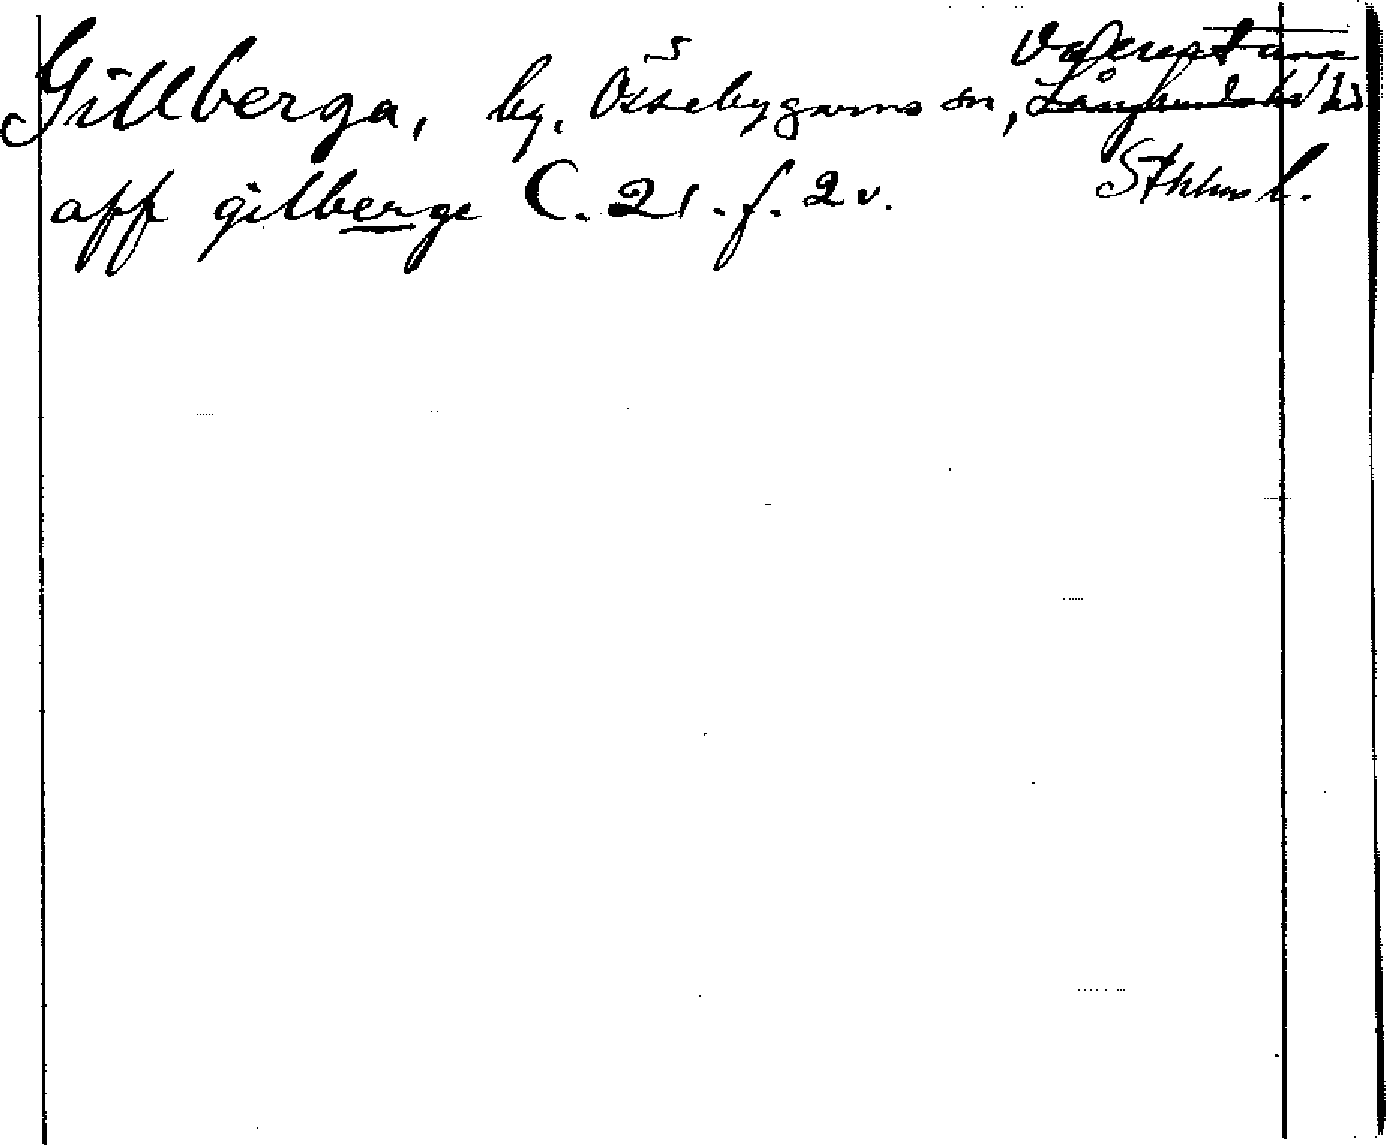 Gillberga, by, Össebygarns sn, Långhundra hd
aff gilberge C. 21. f. 2 v. Sthlms l.